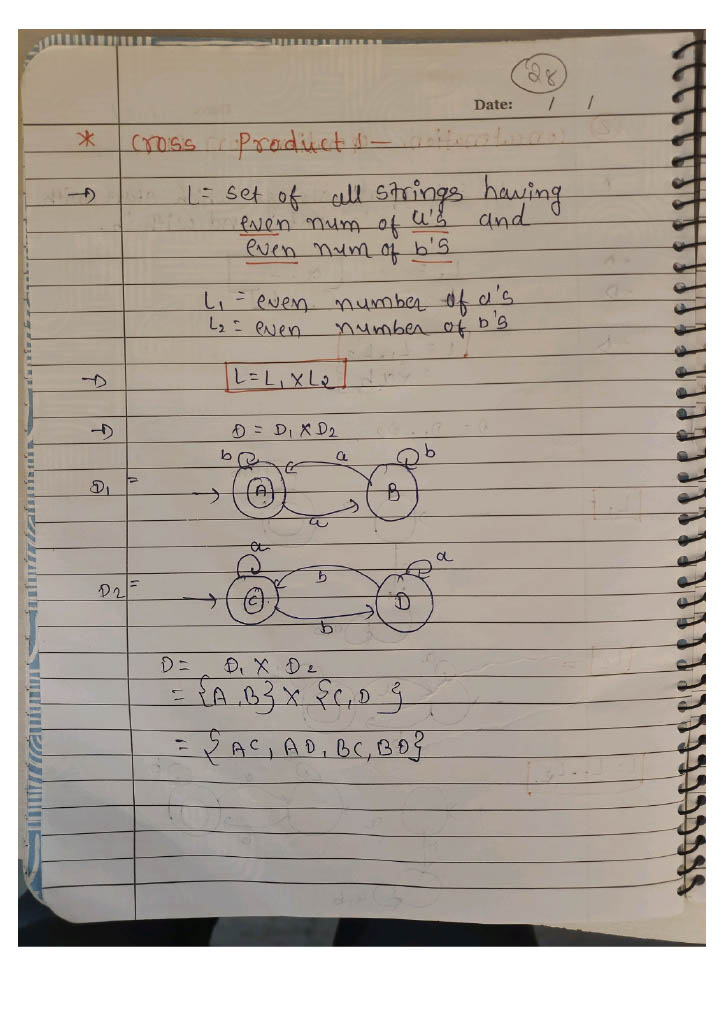 28
Date: / /
* Cross Product :-
→ L = set of all strings having
even num of a's and
even num of b's
L₁ = even number of a's
L₂ = even number of b's
→ L = L₁ X L₂
→ D = D₁ X D₂
b a b
D₁ = A B
a
a b a
D₂ = C D
b
D = D₁ X D₂
= {A, B} X {C, D }
= { AC, AD, BC, BD}